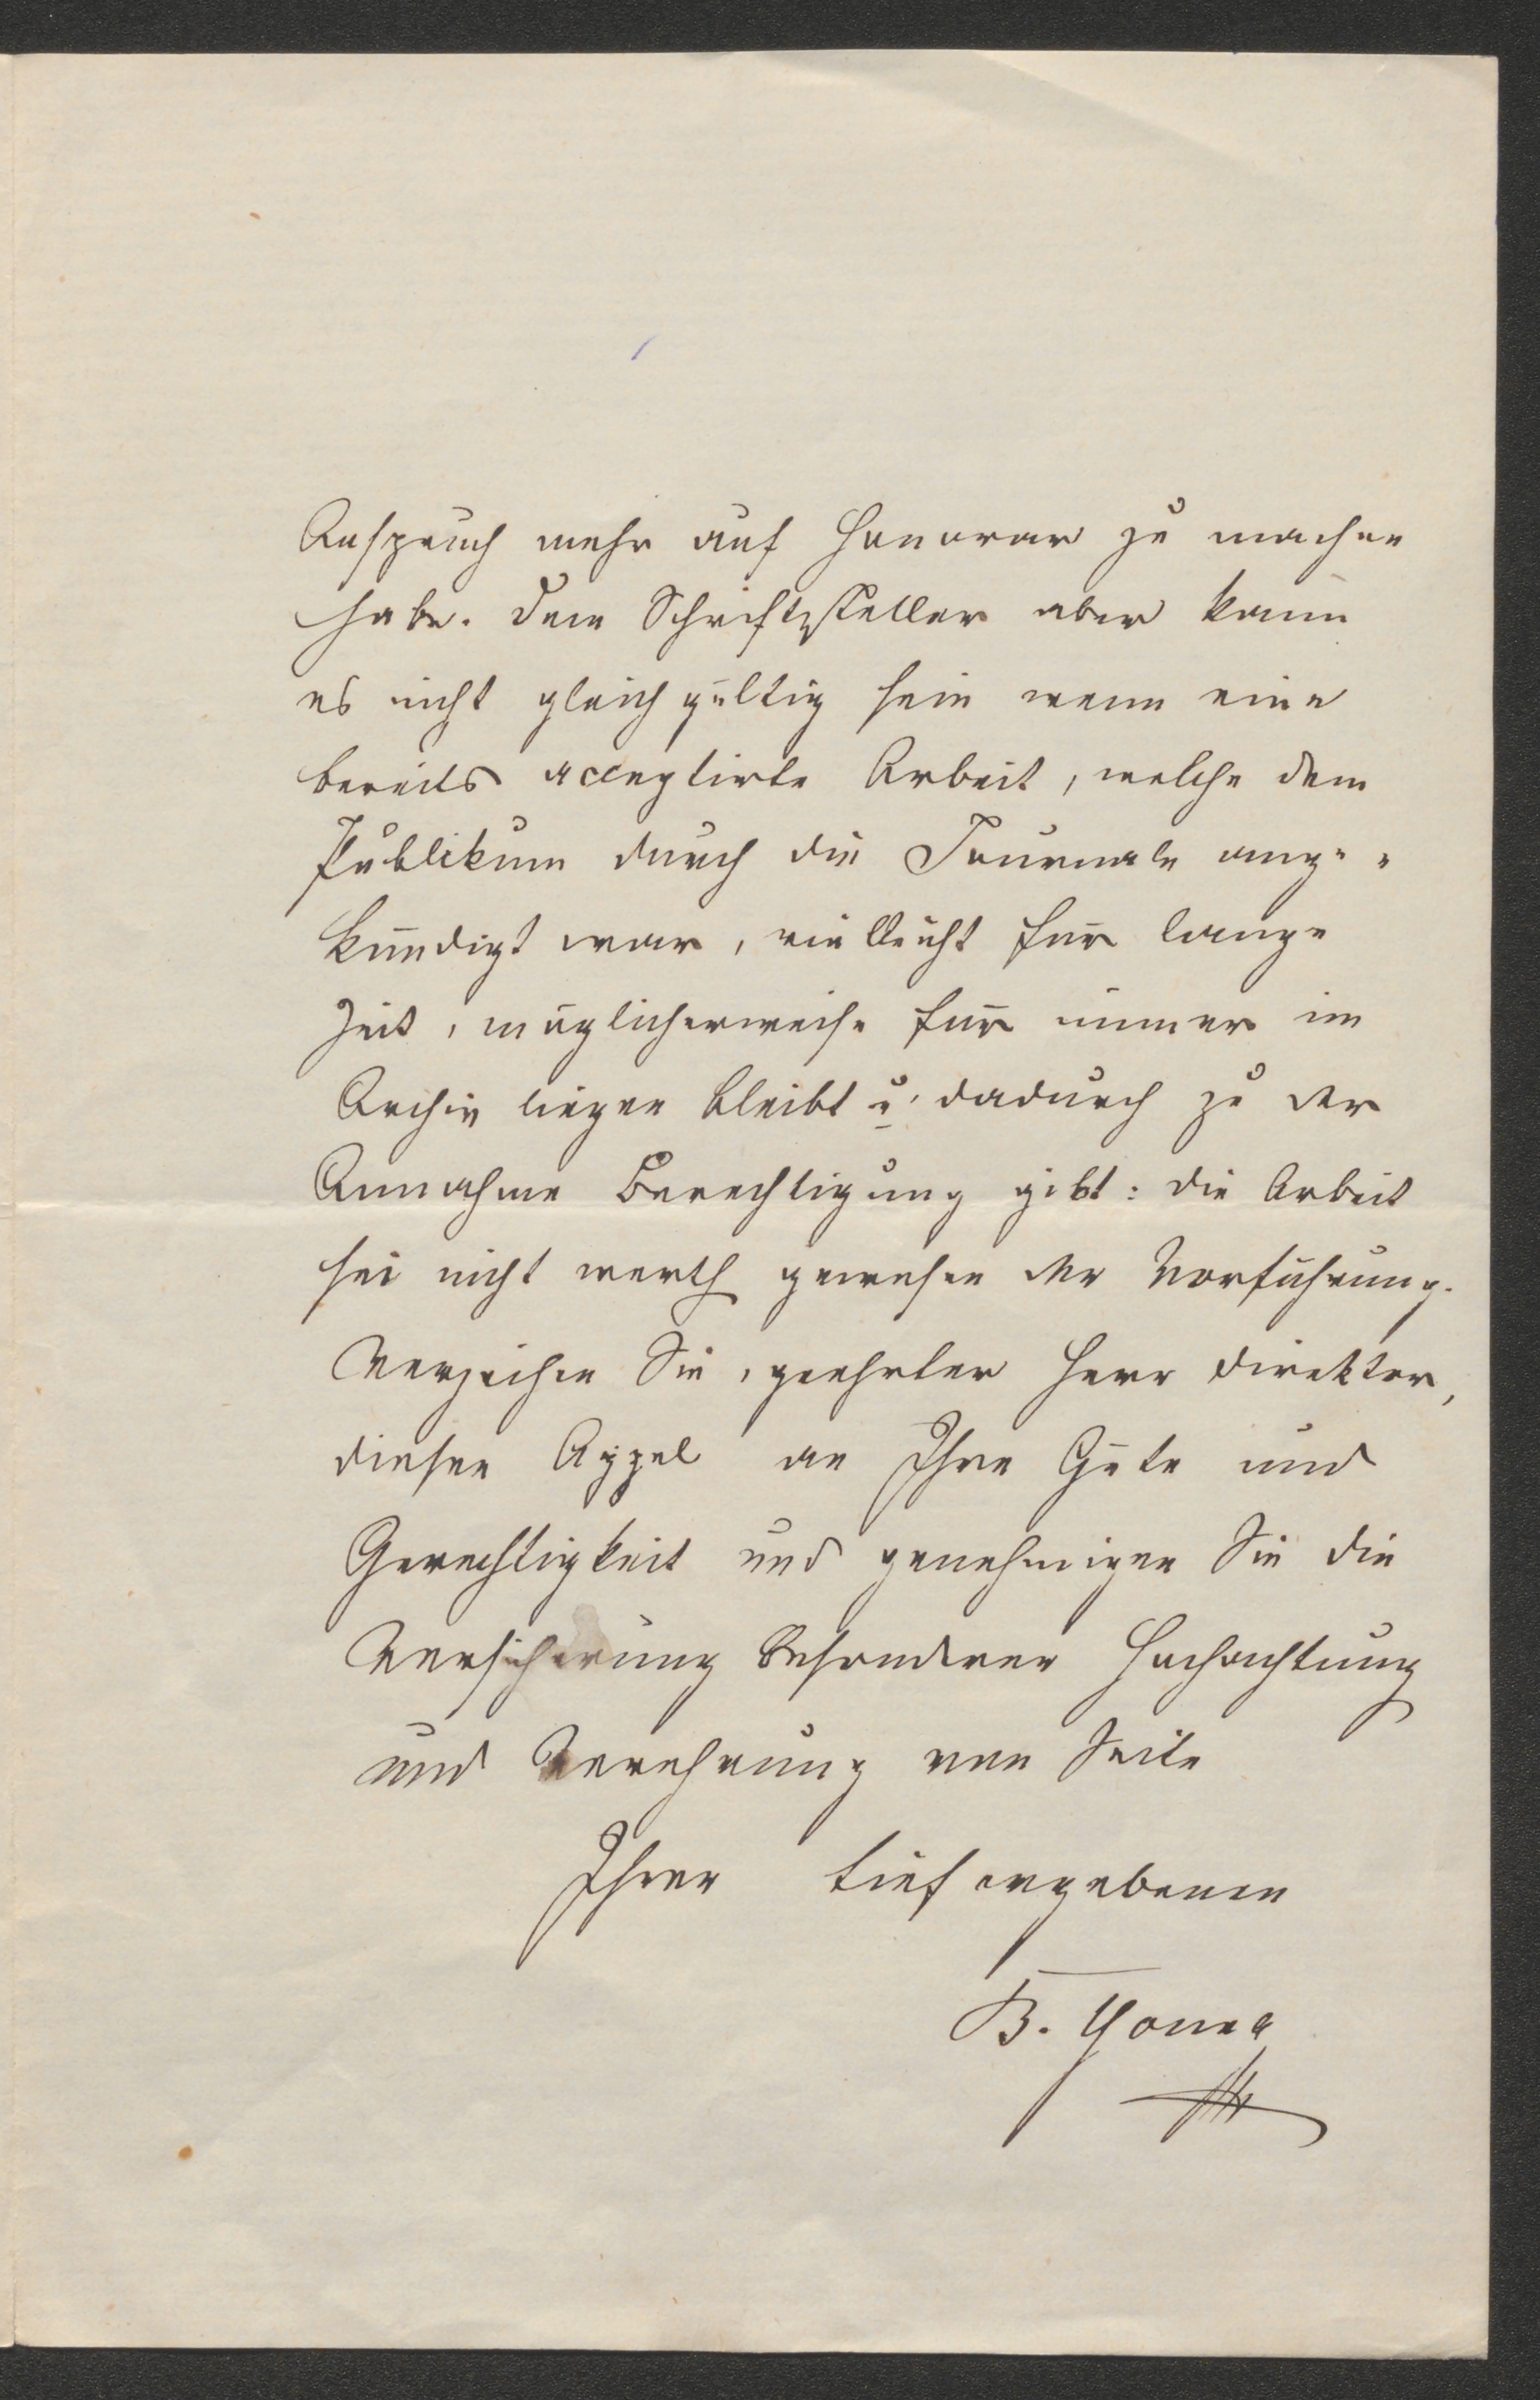 Anspruch mehr auf Honorar zu machen
habe. Dem Schriftsteller aber kann
es nicht gleichgültig sein wenn eine
bereits acceptirte Arbeit, welche dem
Publikum durch die Journale ange-
kündigt war, vielleicht für lange
Zeit, möglicherweise für immer im
Archiv liegen bleibt u. dadurch zu der
Annahme Berechtigung gibt: die Arbeit
sei nicht werth gewesen der Vorführung.
Verzeihen Sie, geehrter Herr Direktor,
diesen Appel an Ihre Güte und
Gerechtigkeit und genehmigen Sie die
Versicherung besonderer Hochachtung
und Verehrung von Seite
Ihrer tiefergebenen
B. Young